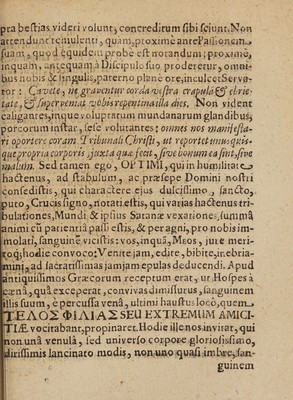 pra bestias videri volunt, concreditum sibi sciunt. Non
attendunt temulenti, quam, proximè ante Passionem
suam, quod equidem probe est notandum: proximè,
inquam, antequam à Discipulo suo proderetur, omni-
bus nobis & singulis, paterno planè ore, inculcet Serva-
tor: Cavete, ne graventur corda vestra crapulâ & ebrie-
tate, & superveniat vobis repentina illa dies. Non vident
caligantes, inque voluptatum mundanarum glandibus,
porcorum instar, sese volutantes: omnes nos manifesta-
ri oportere coram Tribunali Christi, ut reportet unusquis-
que propria corporis juxta quæ fecit, sive bonum ea sint, sive
malum. Sed tamen ego, OPTIMI, qui in humilitate
hactenus, ad stabulum, ac præsepe Domini nostri
consedistis, qui charactere ejus dulcissimo, sancto,
puto, Crucis signo, notati estis, qui varias hactenus tri-
bulationes, Mundi, & ipsius Satanæ vexationes, summâ
animi cum patientiâ passi estis, & per agni, pro nobis im-
molati, sanguinẽ vicistis: vos, inquã, Meos, jure meri-
toq; hodie convoco: Venite jam, edite, bibite, inebria-
mini, ad sacratissimas jamjam epulas deducendi. Apud
antiquissimos Græcorum receptum erat, ut Hospes à
cœnâ, quâ exceperat, convivas dimissurus, sanguinem
illis suum, è percussa venâ, ultimi haustus locô, quem
ΤΕΛΟΣ ΦΙΛΙΑΣ SEU EXTREMUM AMICI-
TIÆ vocitabant, propinaret. Hodie ille nos invitat, qui
non unâ venulâ, sed universo corpore gloriosissimo,
dirissimis lancinato modis, non uno quasi imbre, san-
guinem